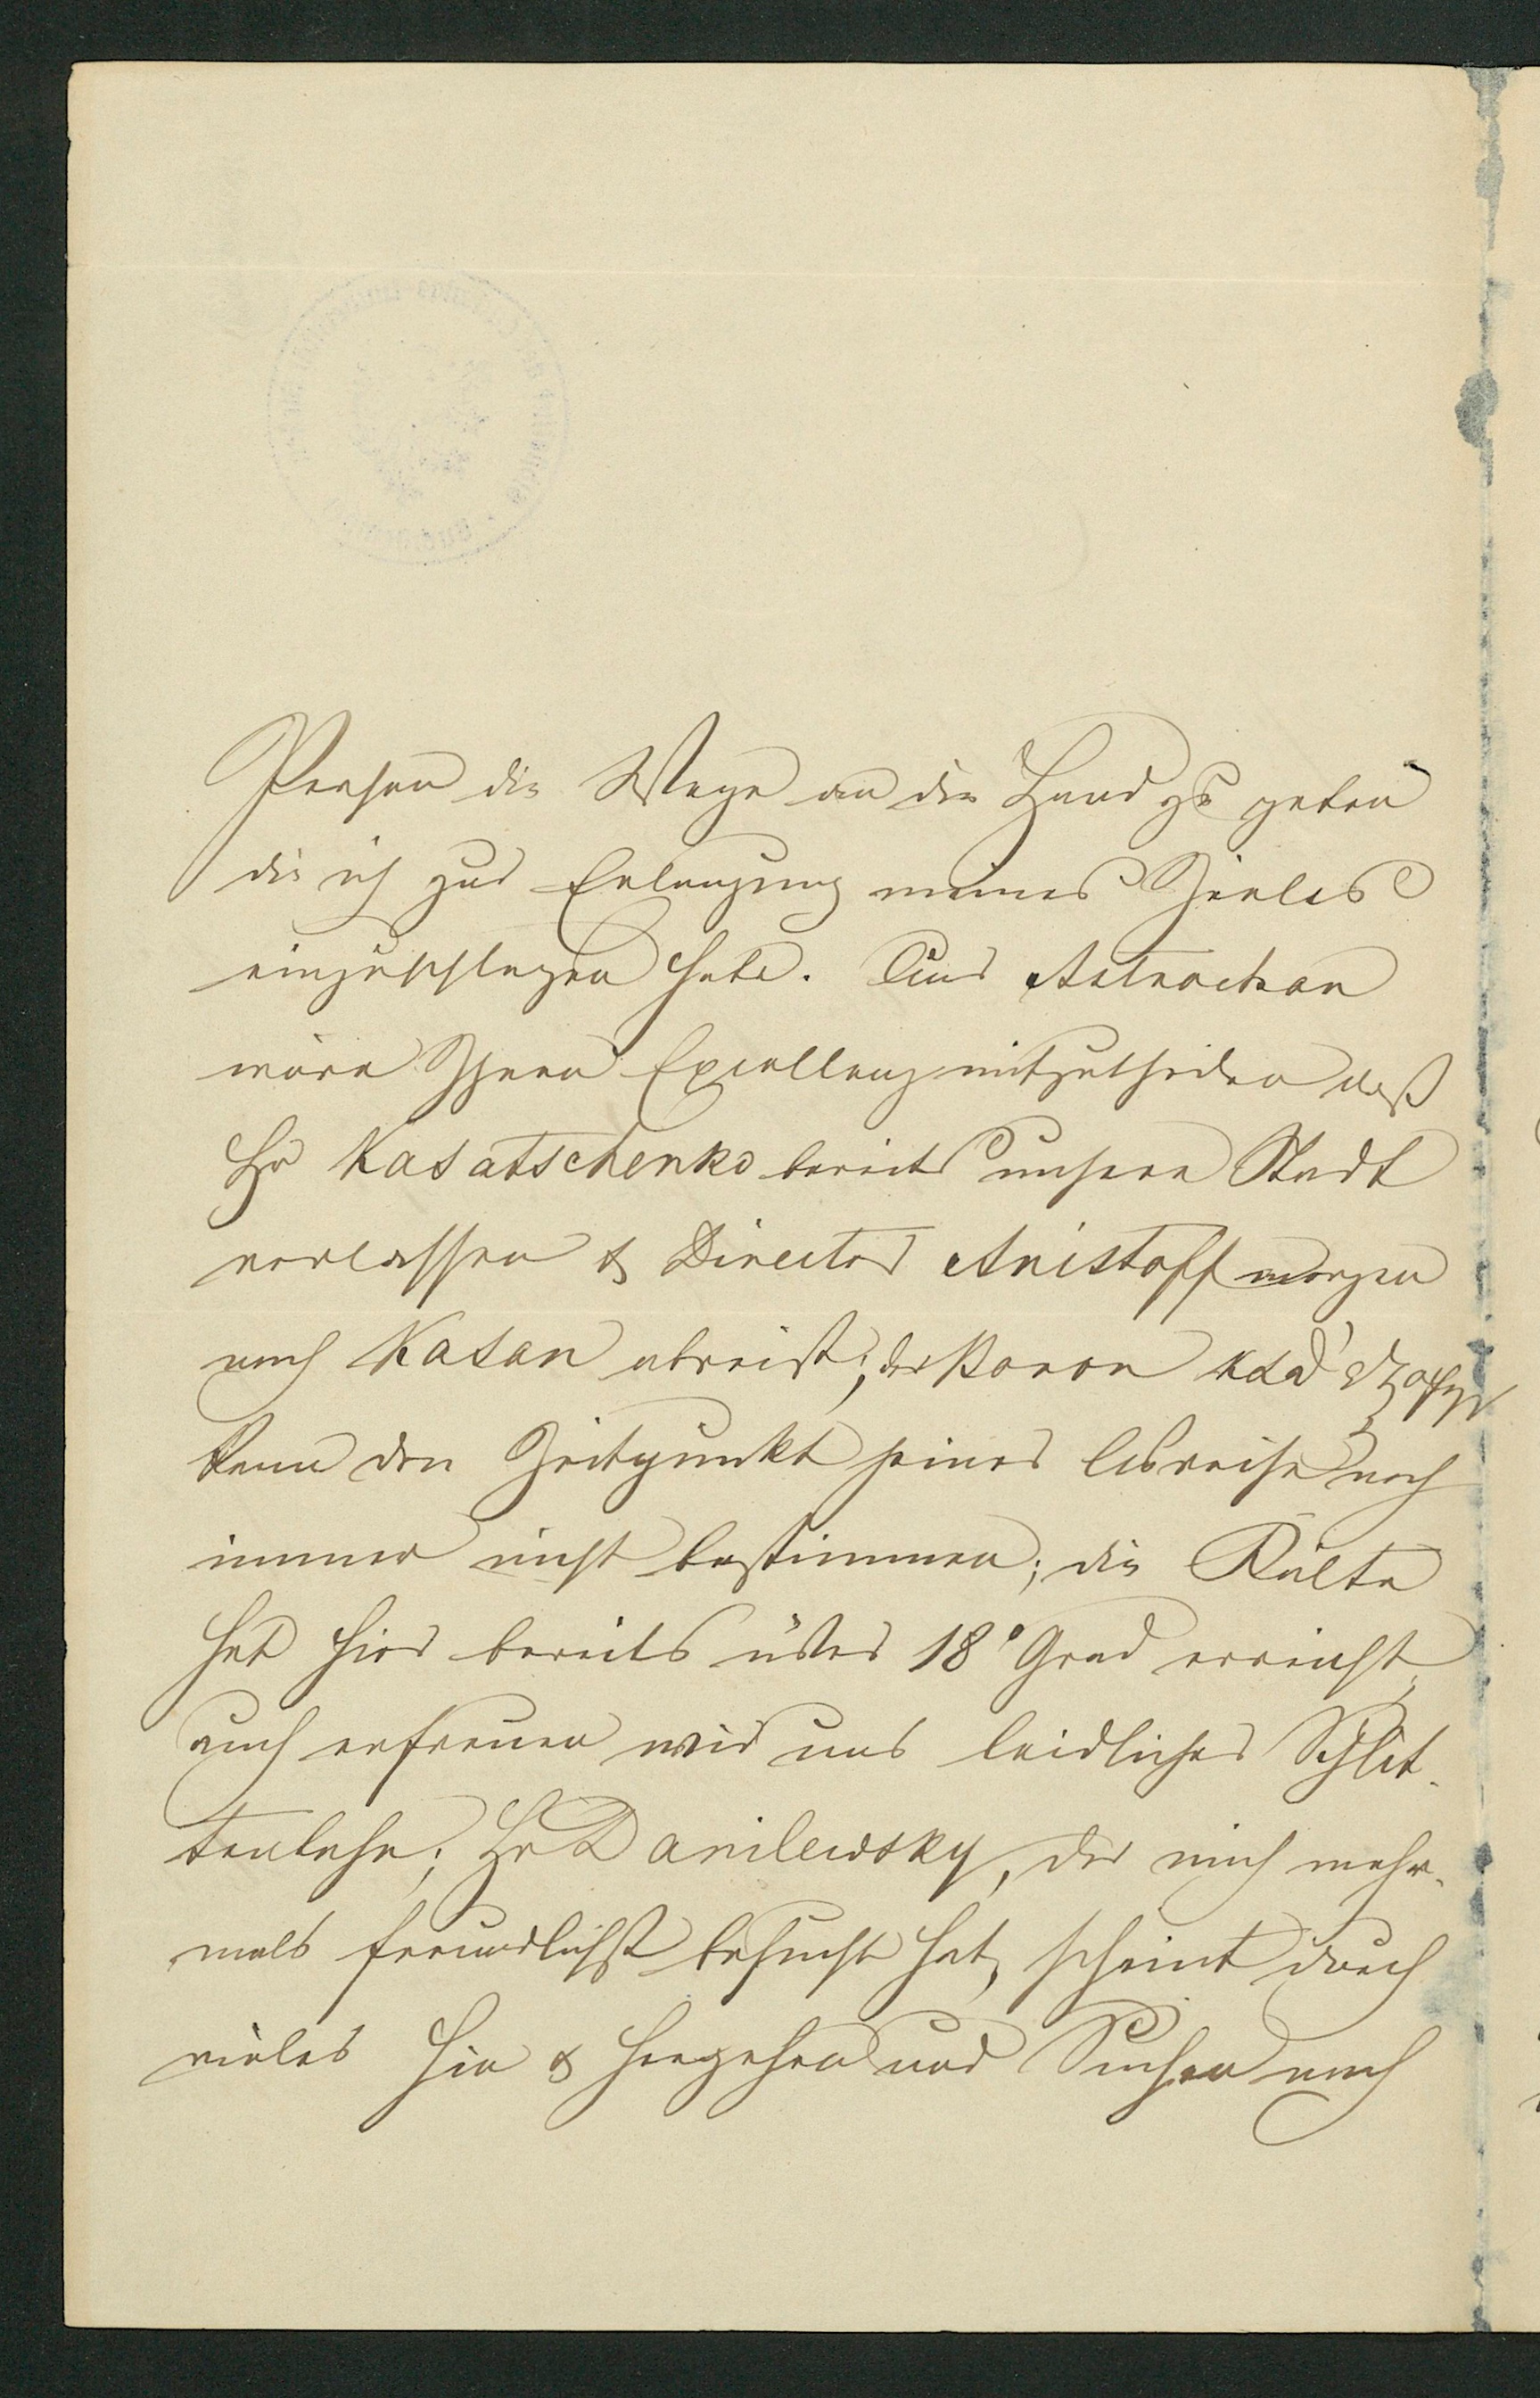 Person die Wege an die Hand zu geben
die ich zur Erlangung meines Zieles
einzuschlagen habe. Aus Astrachan
wäre Ihnen Excellenz mitzutheilen daß
Hr Kasatschenko bereits unsere Stadt
verlassen & Director Aristoff morgen
nach Kasan abreist; der Baron
kann den Zeitpunkt seiner Abreise noch
immer nicht bestimmen; die Kälte
hat hier bereits über 18° Grad erreicht,
auch erfreuen wir uns leidlicher Schlit-
tenbahn; Hr Danilewsky, der mich mehr-
mals freundlichst besucht hat, scheint durch
vieles Hin & Hergehen und Suchen nach